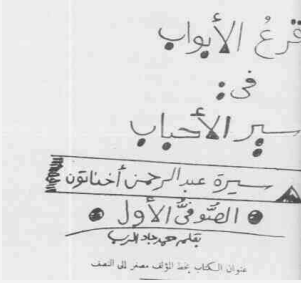 قرعُ الأبواب
في:
سير الأحباب
سيرة عبد الرحمن أخناتون
الصّوفيّ الأول
بقلم
عنوان الكتاب بخط المؤلف مصغر إلى النصف